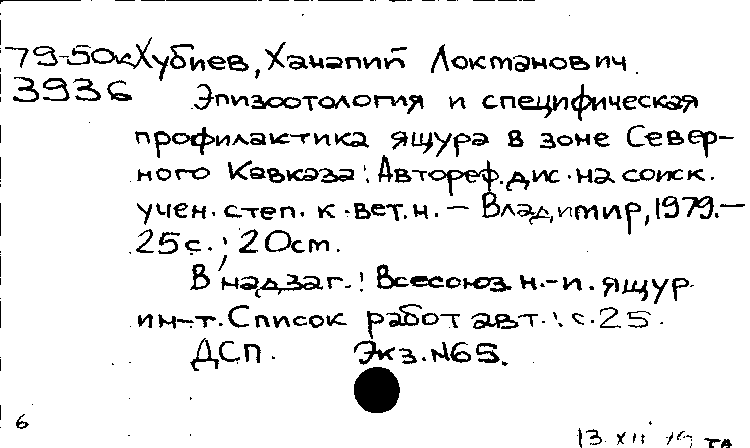 79-50к Хубиев, Ханапий Локманович.
3936 Эпизоотология и специфическая
профилактика ящура в зоне Север-
ного Кавказа: Автореф. дис. на соиск.
учен. степ. к. вет. н. – Владимир, 1979. –
25 с.; 20 см.
В надзаг.: Всесоюз. н.-и. ящур.
ин-т. Список работ авт.: с. 25.
ДСП. Экз. №65.
6
13 XII